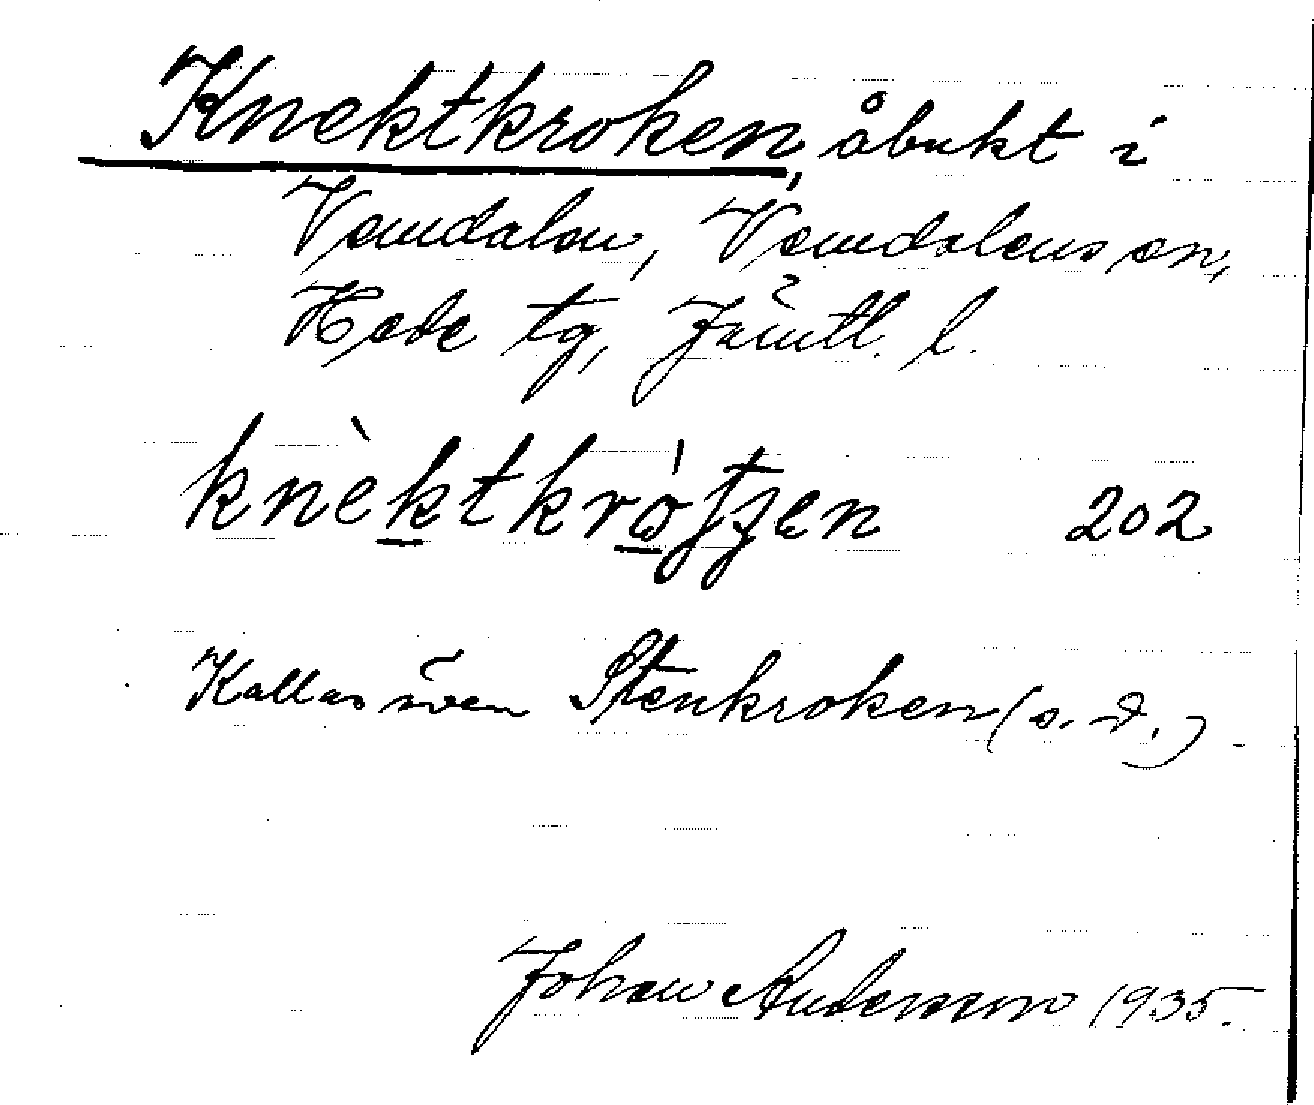 Knektkroken, åbukt i
Vemdalen, Vemdalens sn,
Hede tg, Jämtl. l.
knèktkrò̱ʃʒen 202
Kallas även Stenkroken (s. d.).
Johan Andersson 1935.